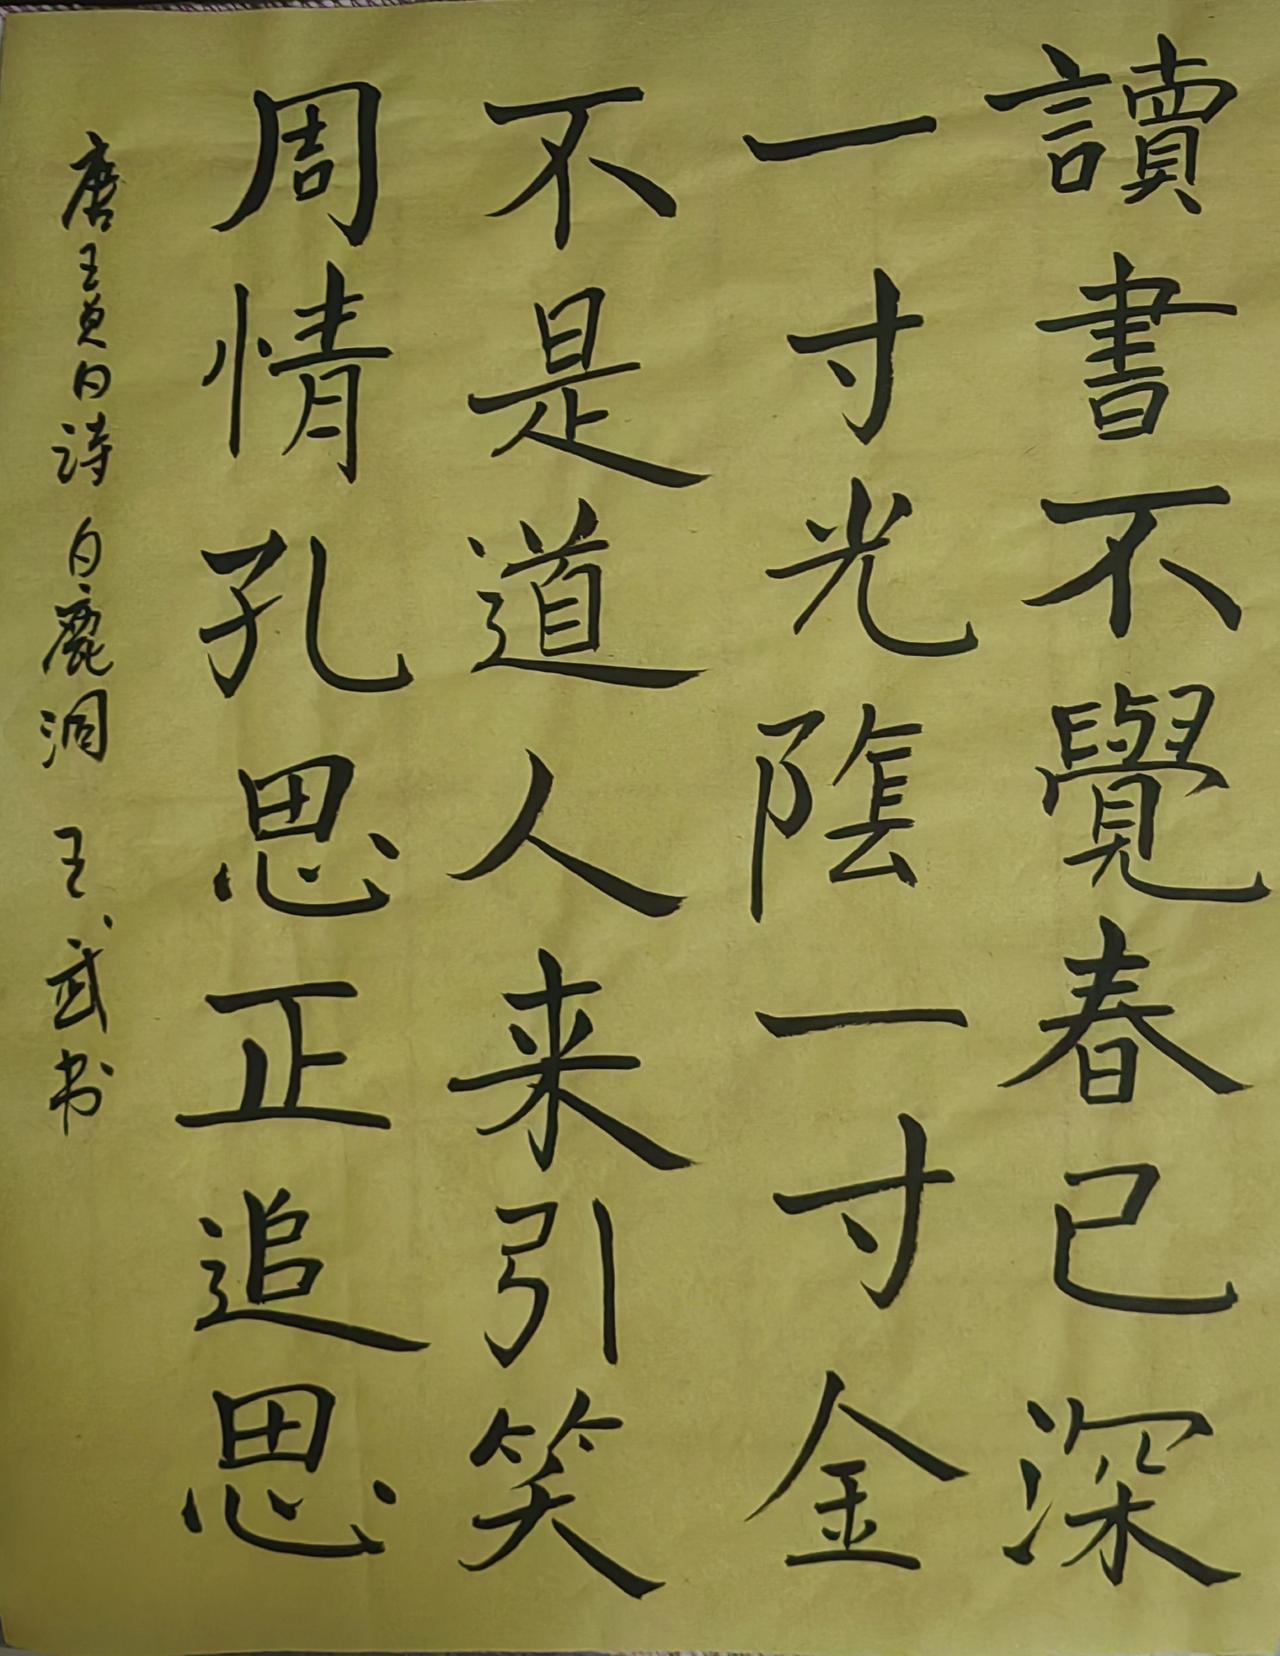 讀書不覺春已深
一寸光陰一寸金
不是道人来引笑
周情孔思正追思
唐王貞白詩白鹿洞 王武书